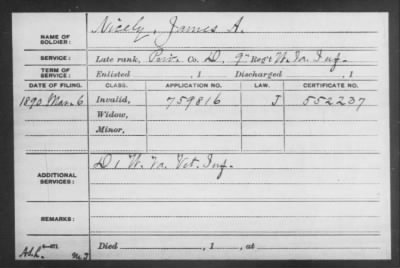 NAME OF SOLDIER: Nicely, James A.
SERVICE: Late rank, Priv. Co. D, 9" Reg't W. Va. Inf.
TERM OF SERVICE: Enlisted , 1 Discharged , 1
DATE OF FILING. CLASS. APPLICATION NO. LAW. CERTIFICATE NO.
1890 Mar. 6 Invalid, 759816 J 552237
Widow,
Minor,
ADDITIONAL SERVICES: D 1 W. Va. Vet. Inf.
REMARKS:
Died , 1 , at